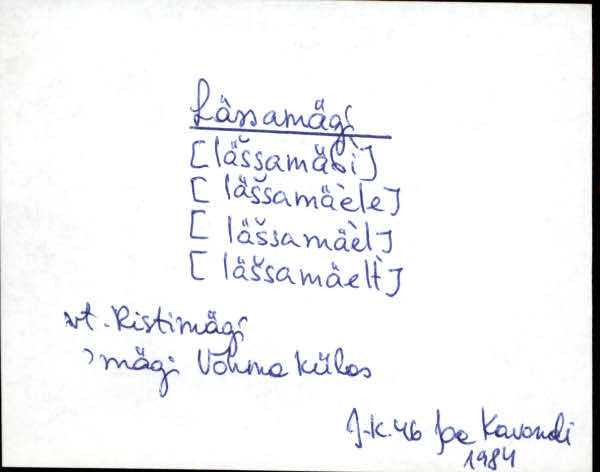 Lässamägi
[läšsamäɢi]
[läšsamäèle]
[läšsamäèl]
[läšsamäelt]
vt. Ristimägi
mägi Võhma külas
J.K. 46 Joe Kavandi
1984